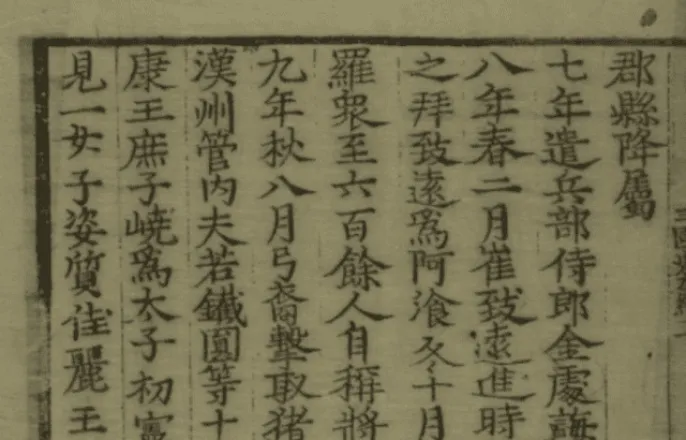 郡縣降屬
七年遣兵部侍郎金處誨
八年春二月崔致遠進時
之拜致遠爲阿飡冬十月
羅衆至六百餘人自稱將
九年秋八月弓裔擊取猪
漢州管内夫若鐵圓等十
康王庶子嶢爲太子初憲
見一女子姿質佳麗王